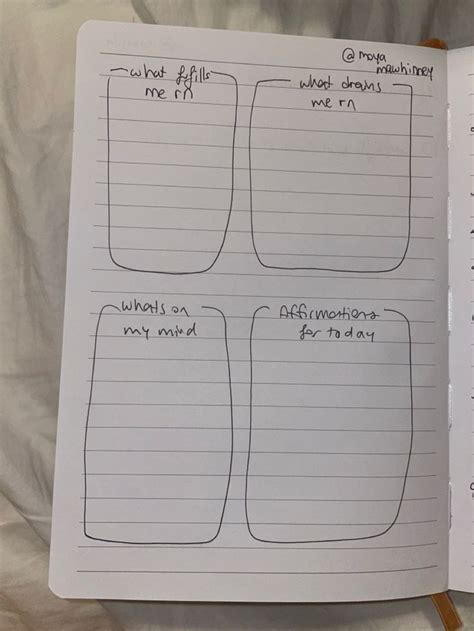 @moya
mawhinney
what fifills
me rn
what drains
me rn
whats on
my mind
Affirmations
for today